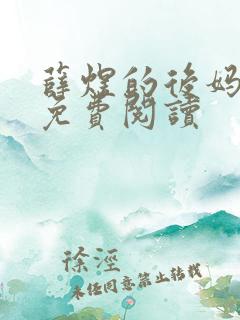 薛煌的後妈
免費閱讀
徐涇
未经同意禁止转载